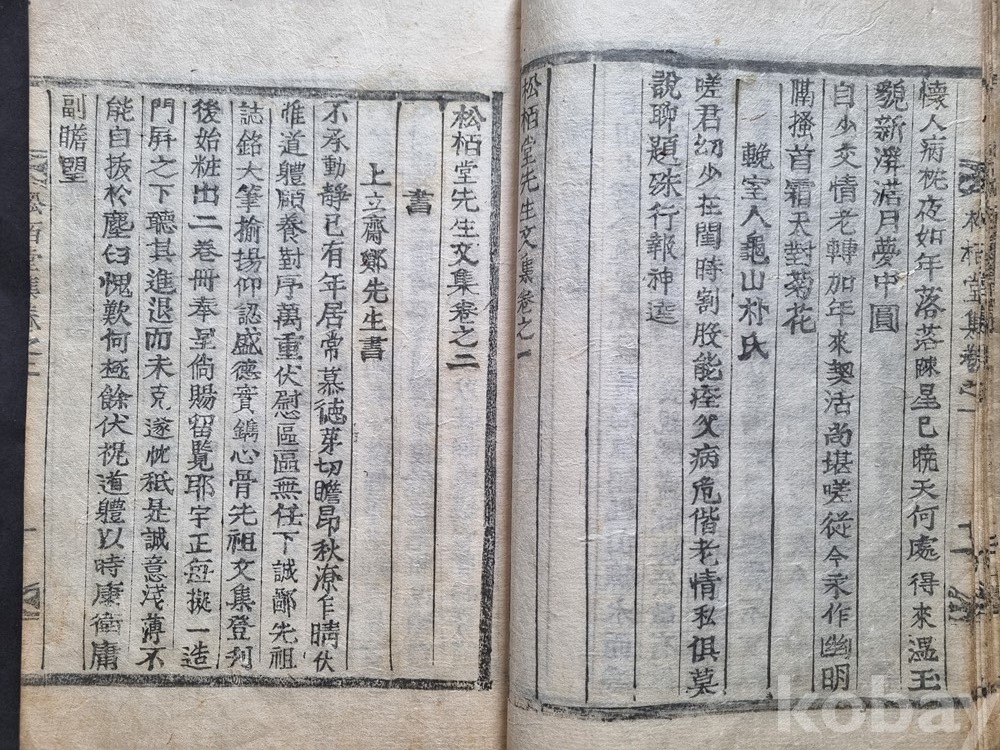 松栢堂集卷之一
懷人病枕夜如年落落踈星已曉天何處得來溫玉
貌新澤滿月夢中圓
自少交情老轉加年來契活尚堪嗟從今永作幽明
隔搔首霜天對菊花
輓室人龜山朴氏
嗟君幼少在閨時割股能痊父病危偕老情私俱莫
說聊題殊行報神逵
松栢堂先生文集卷之一
松栢堂先生文集卷之二
書
上立齋鄭先生書
不承動靜已有年居常慕德芽切瞻昂秋潦乍晴伏
惟道體頤養對序萬重伏慰區區無任下誠鄙先祖
誌銘大筆揄揚仰認盛德實鐫心骨先祖文集登刋
後始粧出二卷冊奉呈倘賜留覽耶宇正無擬一造
門屛之下聽其進退而未克遂忱秪是誠意淺薄不
能自拔於塵臼愧歎何極餘伏祝道體以時康衛庸
副瞻望
松栢堂集卷之二
一
kobay